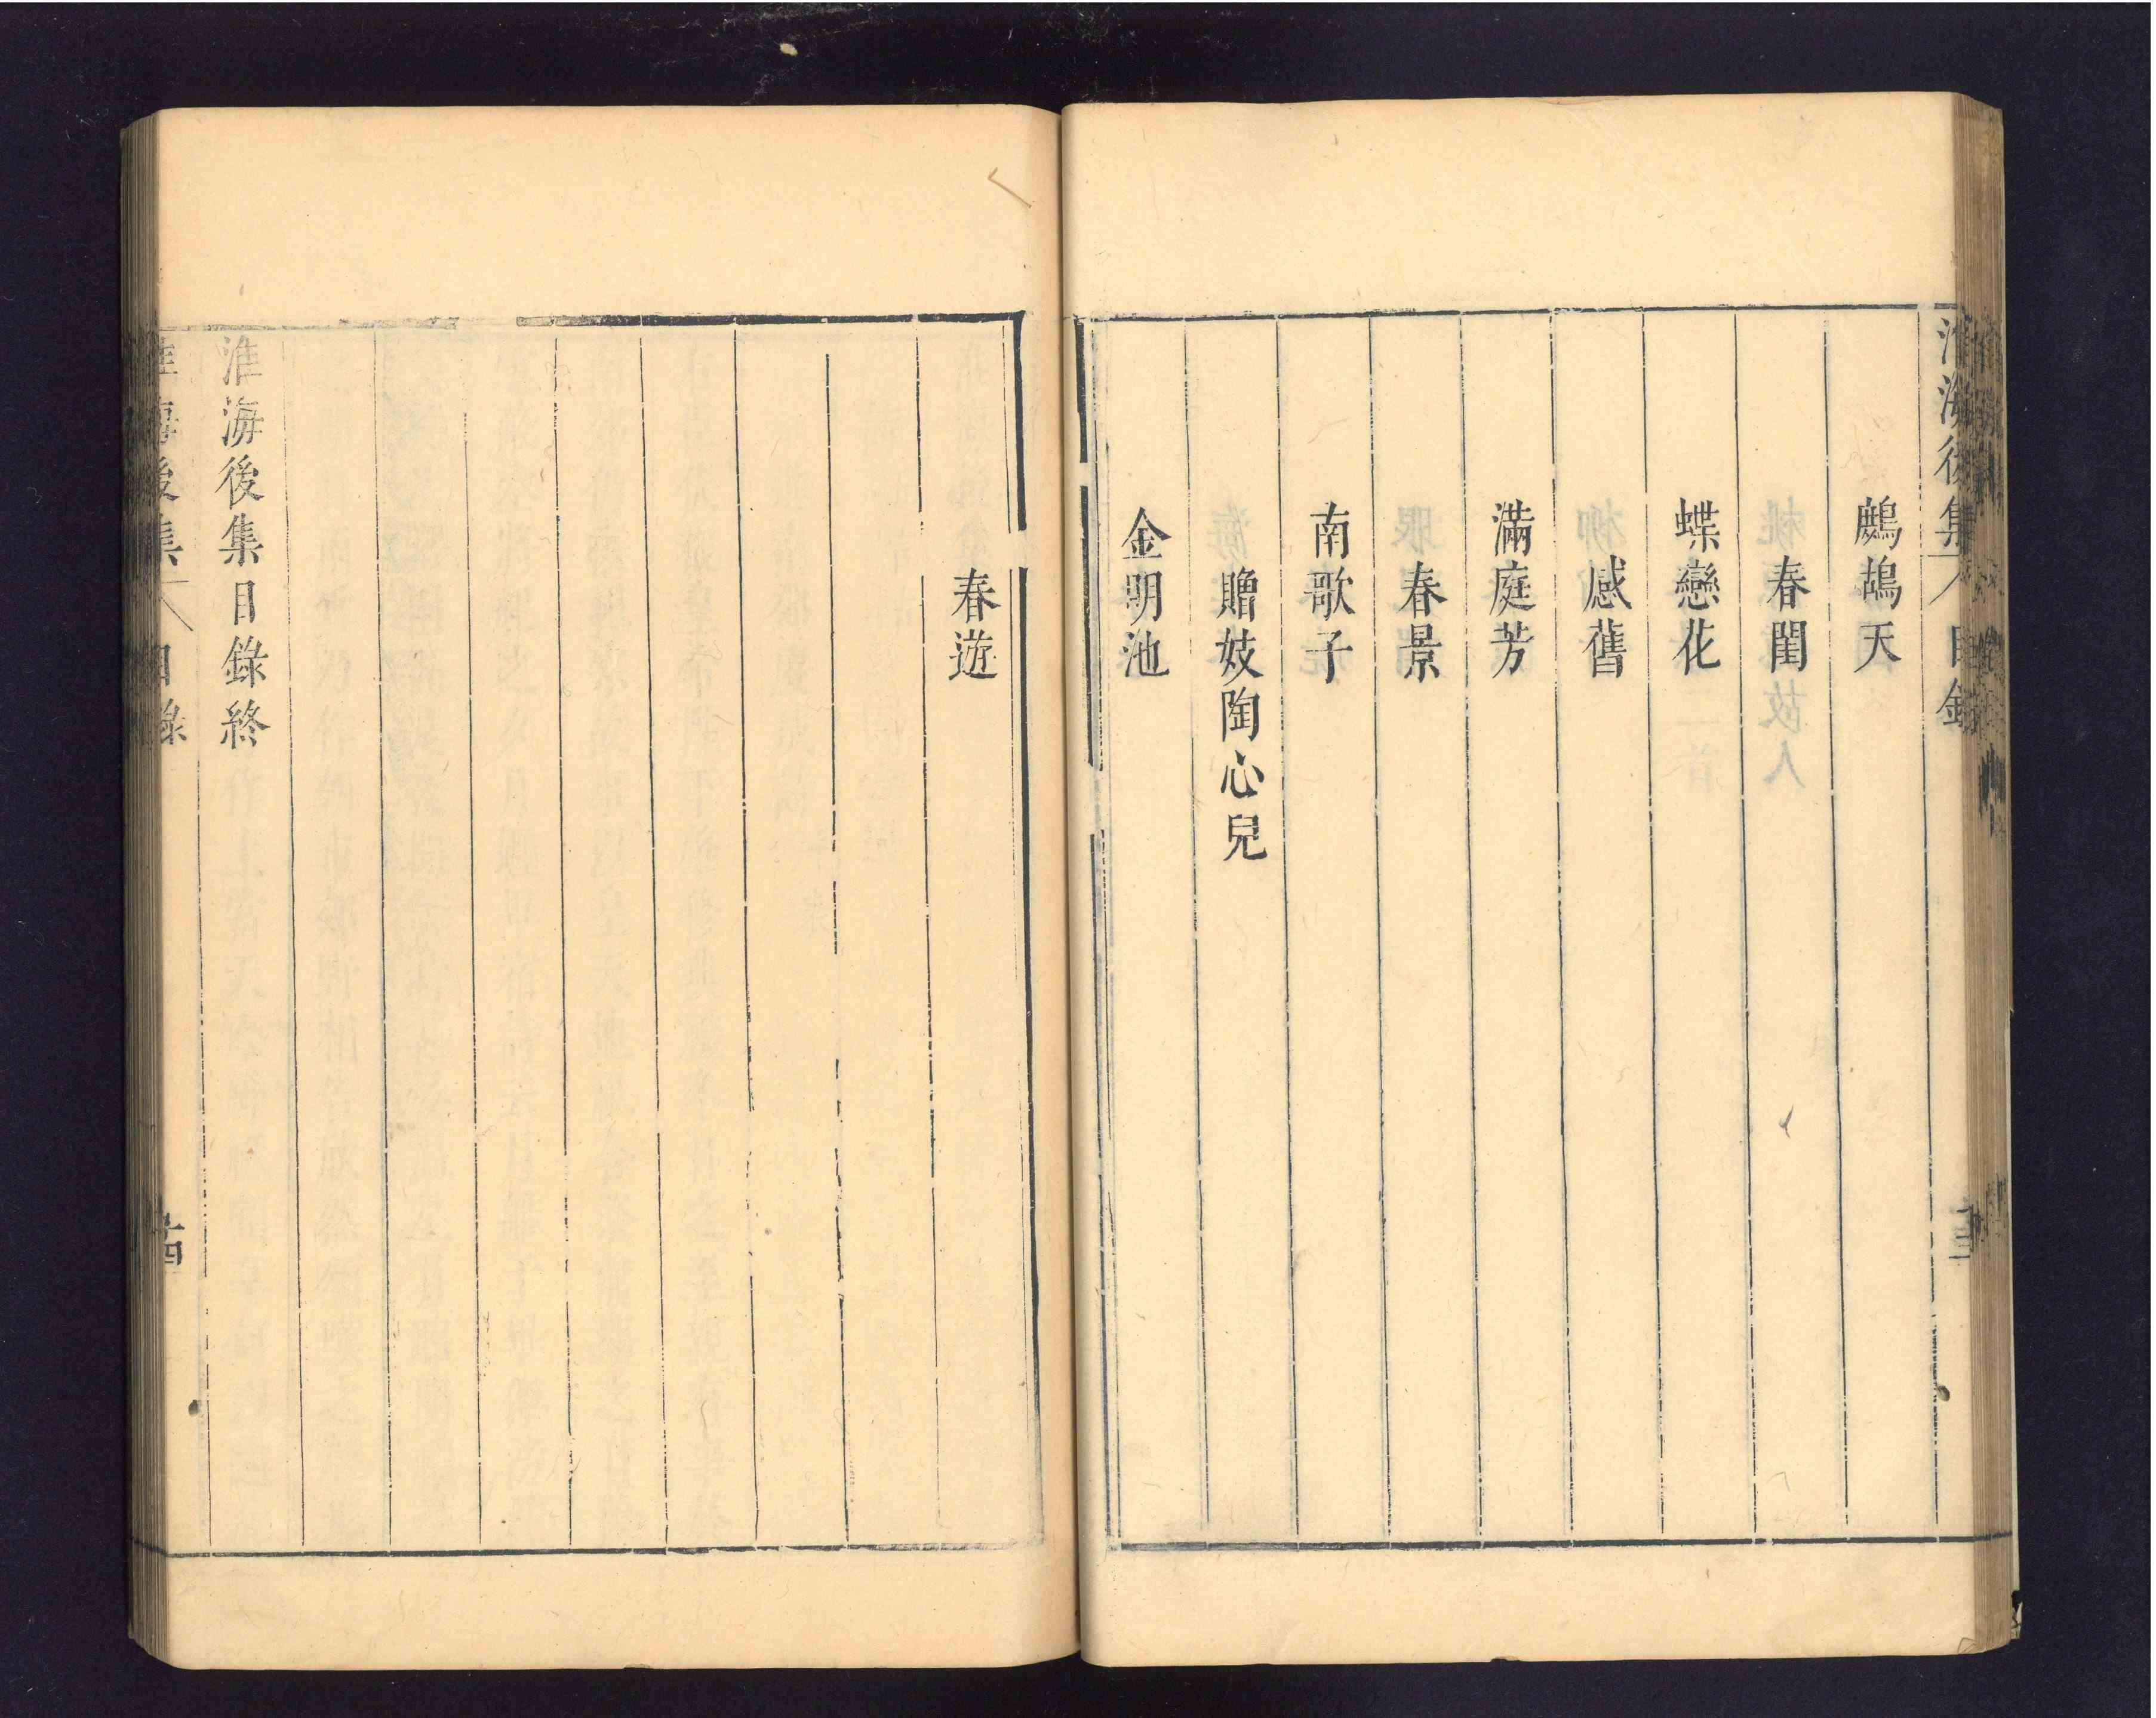 淮海後集 目錄
鷓鴣天
春閨
蝶戀花
感舊
滿庭芳
春景
南歌子
贈妓陶心兒
金明池
春遊
淮海後集目錄終
淮海後集 目錄 十四